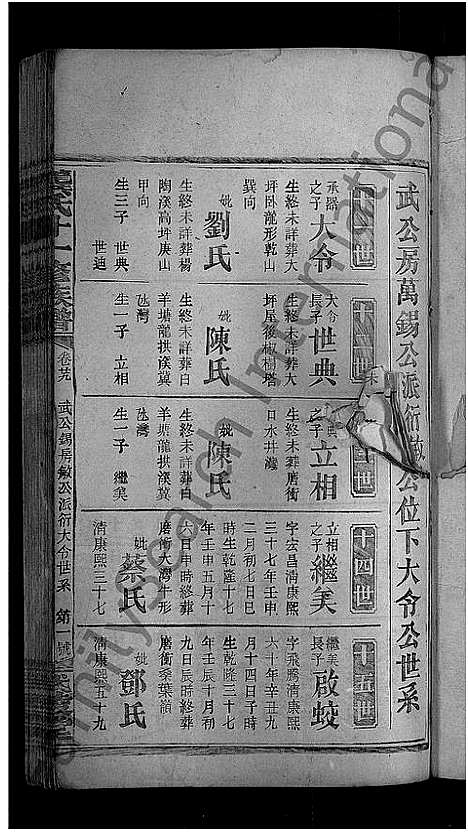 武公房萬錫公派衍敏公位下大令公世系
承器之子大令
生終未詳葬大
坪臥龍形乾山
巽向
妣劉氏
生終未詳葬楊
陶溪高坪庚山
甲向
生三子 世典
世迪
十二世
大令長子世典
生終未詳葬大
坪屋後椒樹塔
妣陳氏
生終未詳葬白
羊塘龍拱溪冀
氹灣
生一子 立相
立相
生終未葬磨衝
口水井灣
妣陳氏
生終未詳葬白
羊塘龍拱溪冀
氹灣
生一子 繼美
十四世
立相之子繼美
字宏昌清康熙
三十七年壬申
二月初七日巳
時生乾隆十七
年壬申五月十
六日申時終葬
磨衝大灣牛形
妣蔡氏
清康熙三十七
十五世
繼美長子啟蛟
字飛騰清康熙
六十年辛丑九
月十四日子時
生乾隆三十七
年壬辰十月初
九日辰時終葬
磨衝季葉嶺
妣鄧氏
清康熙五十九
十一修族譜
卷廿九
武公錫房敏公派衍大令世系
第一號
Family Search International